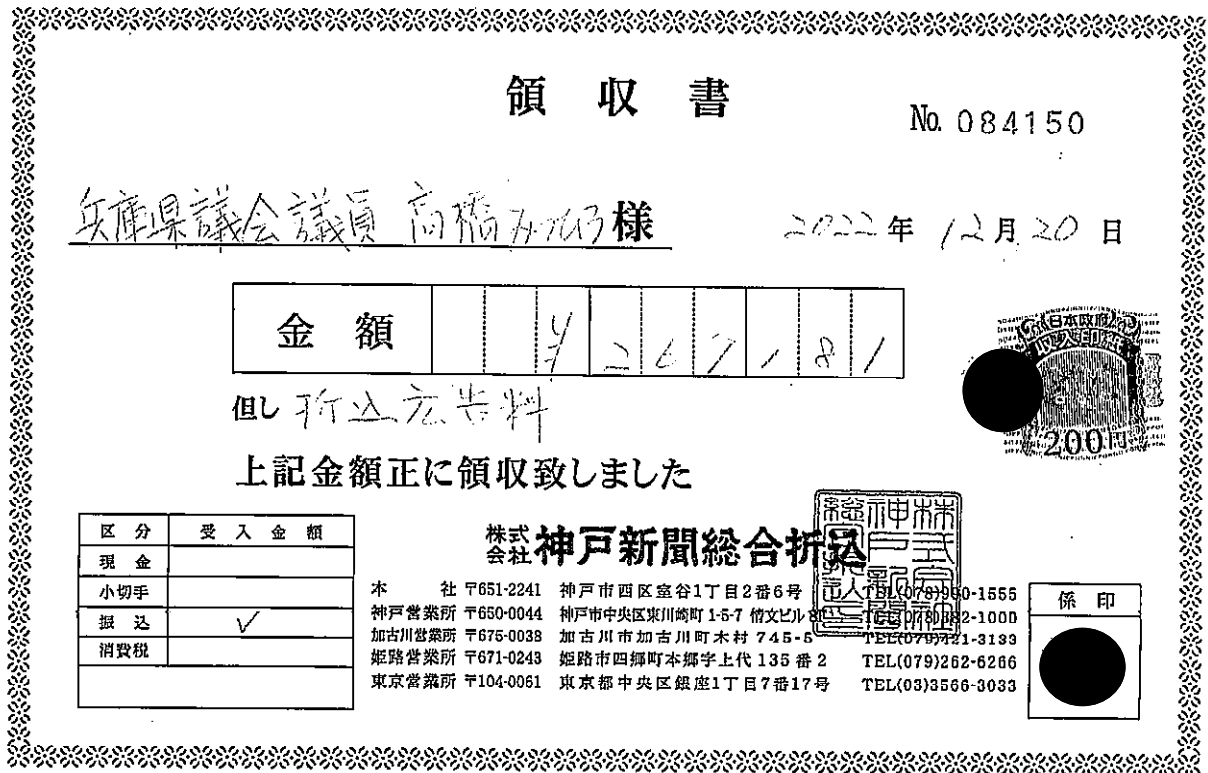 領収書
No. 084150
兵庫県議会議員 高橋みつひろ様
2022年12月20日
金額 ¥267181
但し 折込広告料
日本政府
収入印紙
200円
上記金額正に領収致しました
区分 受入金額
現金
小切手
振込 ✓
消費税
株式会社 神戸新聞総合折込
本社 〒651-2241 神戸市西区室谷1丁目2番6号 TEL(078)990-1555
神戸営業所 〒650-0044 神戸市中央区東川崎町1-5-7 情文ビル TEL(078)382-1000
加古川営業所 〒675-0038 加古川市加古川町木村745-5 TEL(079)421-3133
姫路営業所 〒671-0243 姫路市四郷町本郷字上代135番2 TEL(079)262-6266
東京営業所 〒104-0061 東京都中央区銀座1丁目7番17号 TEL(03)3566-3033
係印